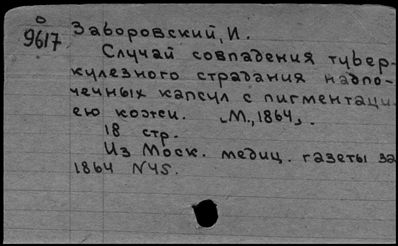 о
9617
Заборовский, И.
Случай совпадения тубер-
кулезного страдания надпо-
чечных капсул с пигментаци-
ею кожи. „М., 1864".
18 стр.
Из Моск. медиц. газеты за
1864 N45.